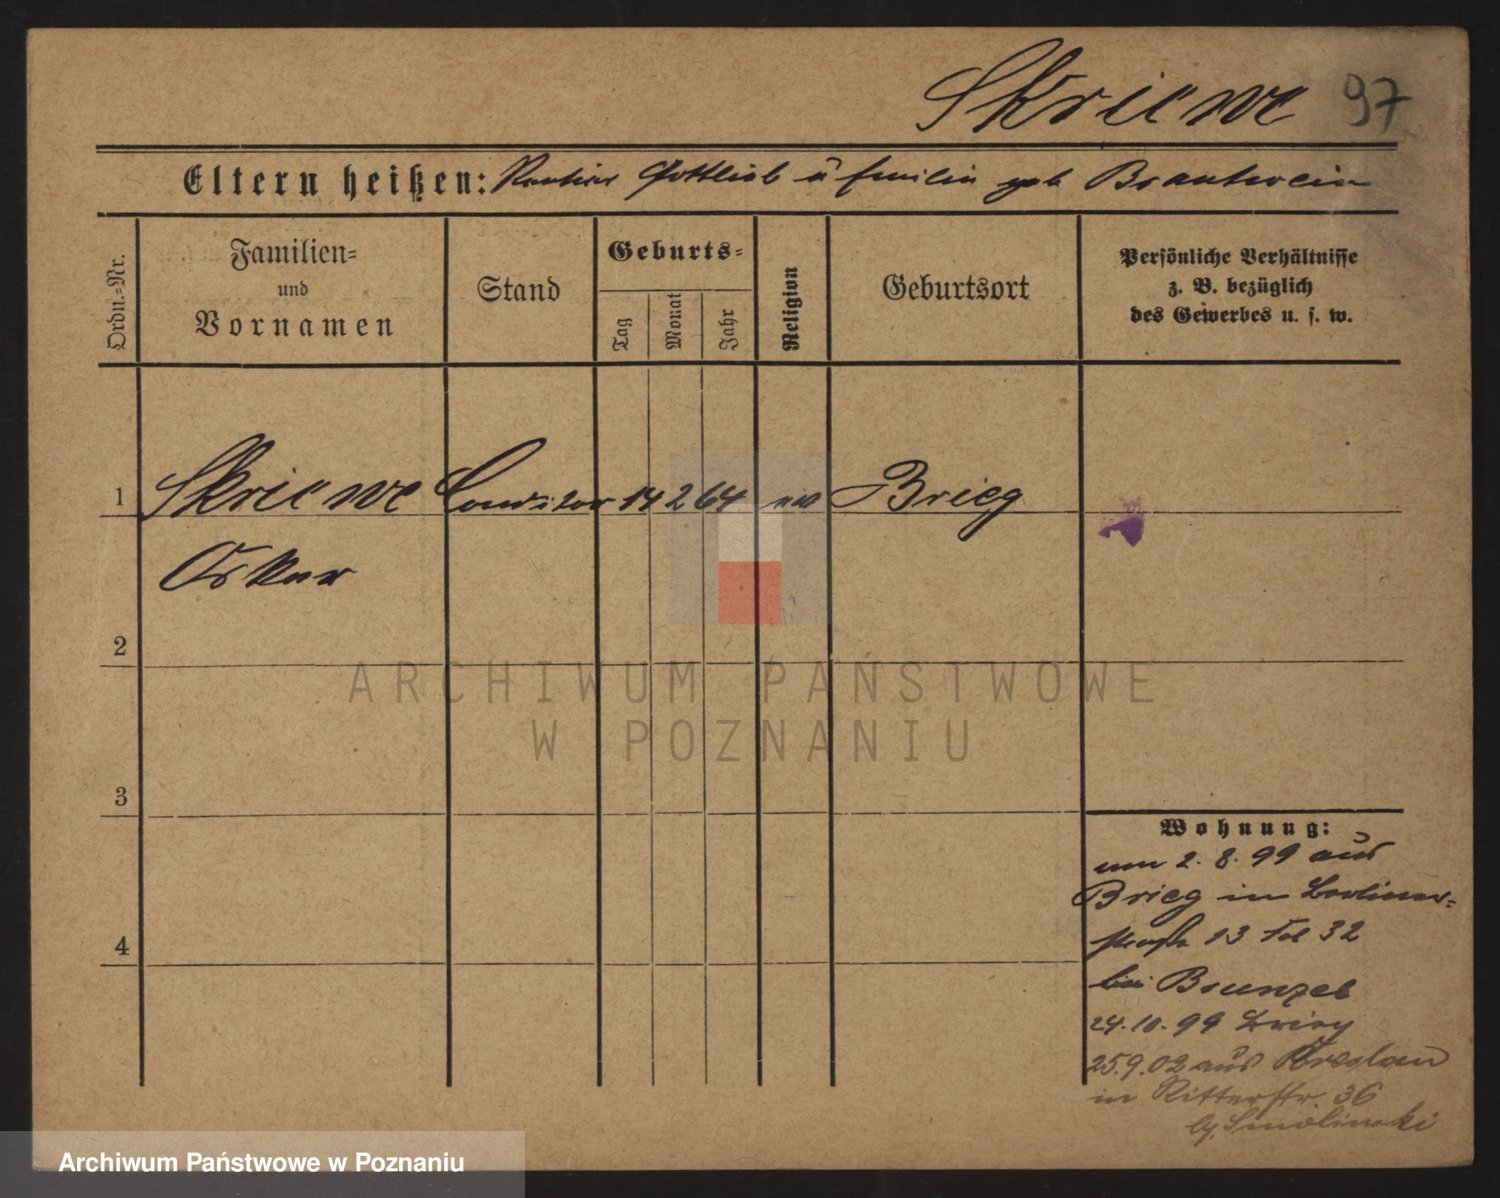 Skriewe 97
Eltern heißen: Rentier Gottlieb u Emilie geb Brantwein
Ordn.-Nr.
Familien-
und
Vornamen
Stand
Geburts-
Tag
Monat
Jahr
Religion
Geburtsort
Persönliche Verhältnisse
z. B. bezüglich
des Gewerbes u. s. w.
1 Skriewe Conditor 14 2 64 Brieg
Oskar
2
3
4
Wohnung:
um 2. 8. 99 aus
Brieg in Berliner-
straße 13 Fol 32
bei Brunzel
24. 10. 99 Brieg
25. 9. 02 aus Breslau
in Ritterstr. 36
b/. Smolinski
ARCHIWUM PAŃSTWOWE
W POZNANIU
Archiwum Państwowe w Poznaniu